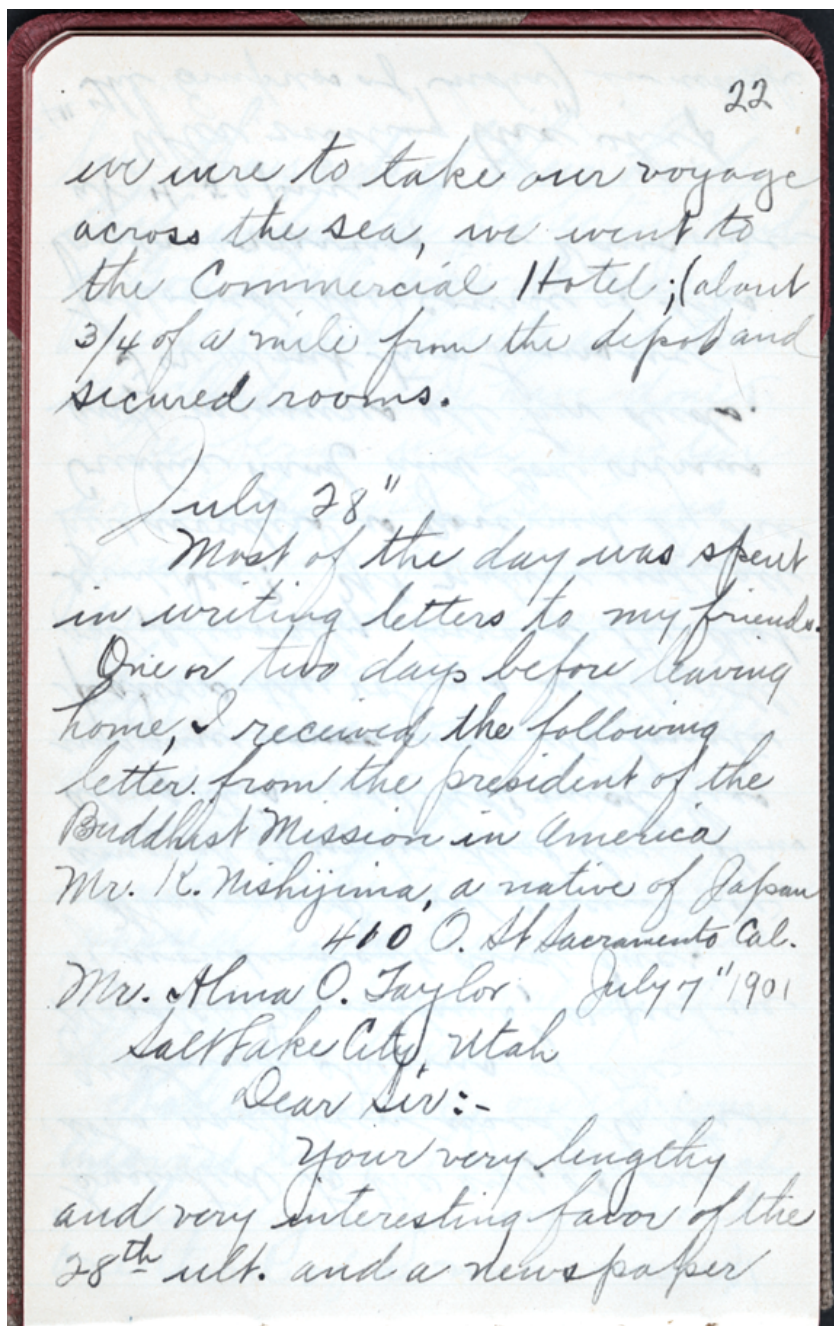 22
we were to take our voyage
across the sea, we went to
the Commercial Hotel; (about
3/4 of a mile from the depot and
secured rooms.
July 28"
Most of the day was spent
in writing letters to my friends.
One or two days before leaving
home, I received the following
letter from the president of the
Buddhist Mission in America
Mr. K. Nishijima, a native of Japan
410 O. St Sacramento Cal.
Mr. Alma O. Taylor July 7" 1901
Salt Lake City, Utah
Dear Sir:-
Your very lengthy
and very interesting favor of the
28th ult. and a newspaper